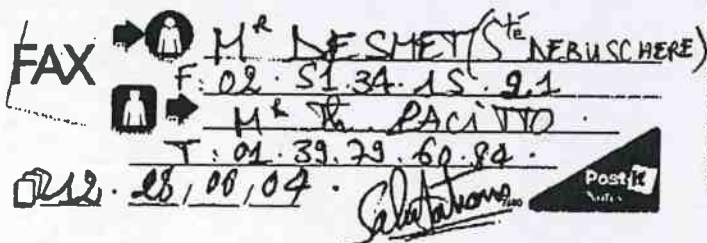 FAX
Mr DESMET (Sté DEBUSCHERE)
F: 02.51.34.15.21
Mr Th. PACITTO
T: 01.39.79.60.84.
12. 28/06/04.
Salutations
Post it
Notes